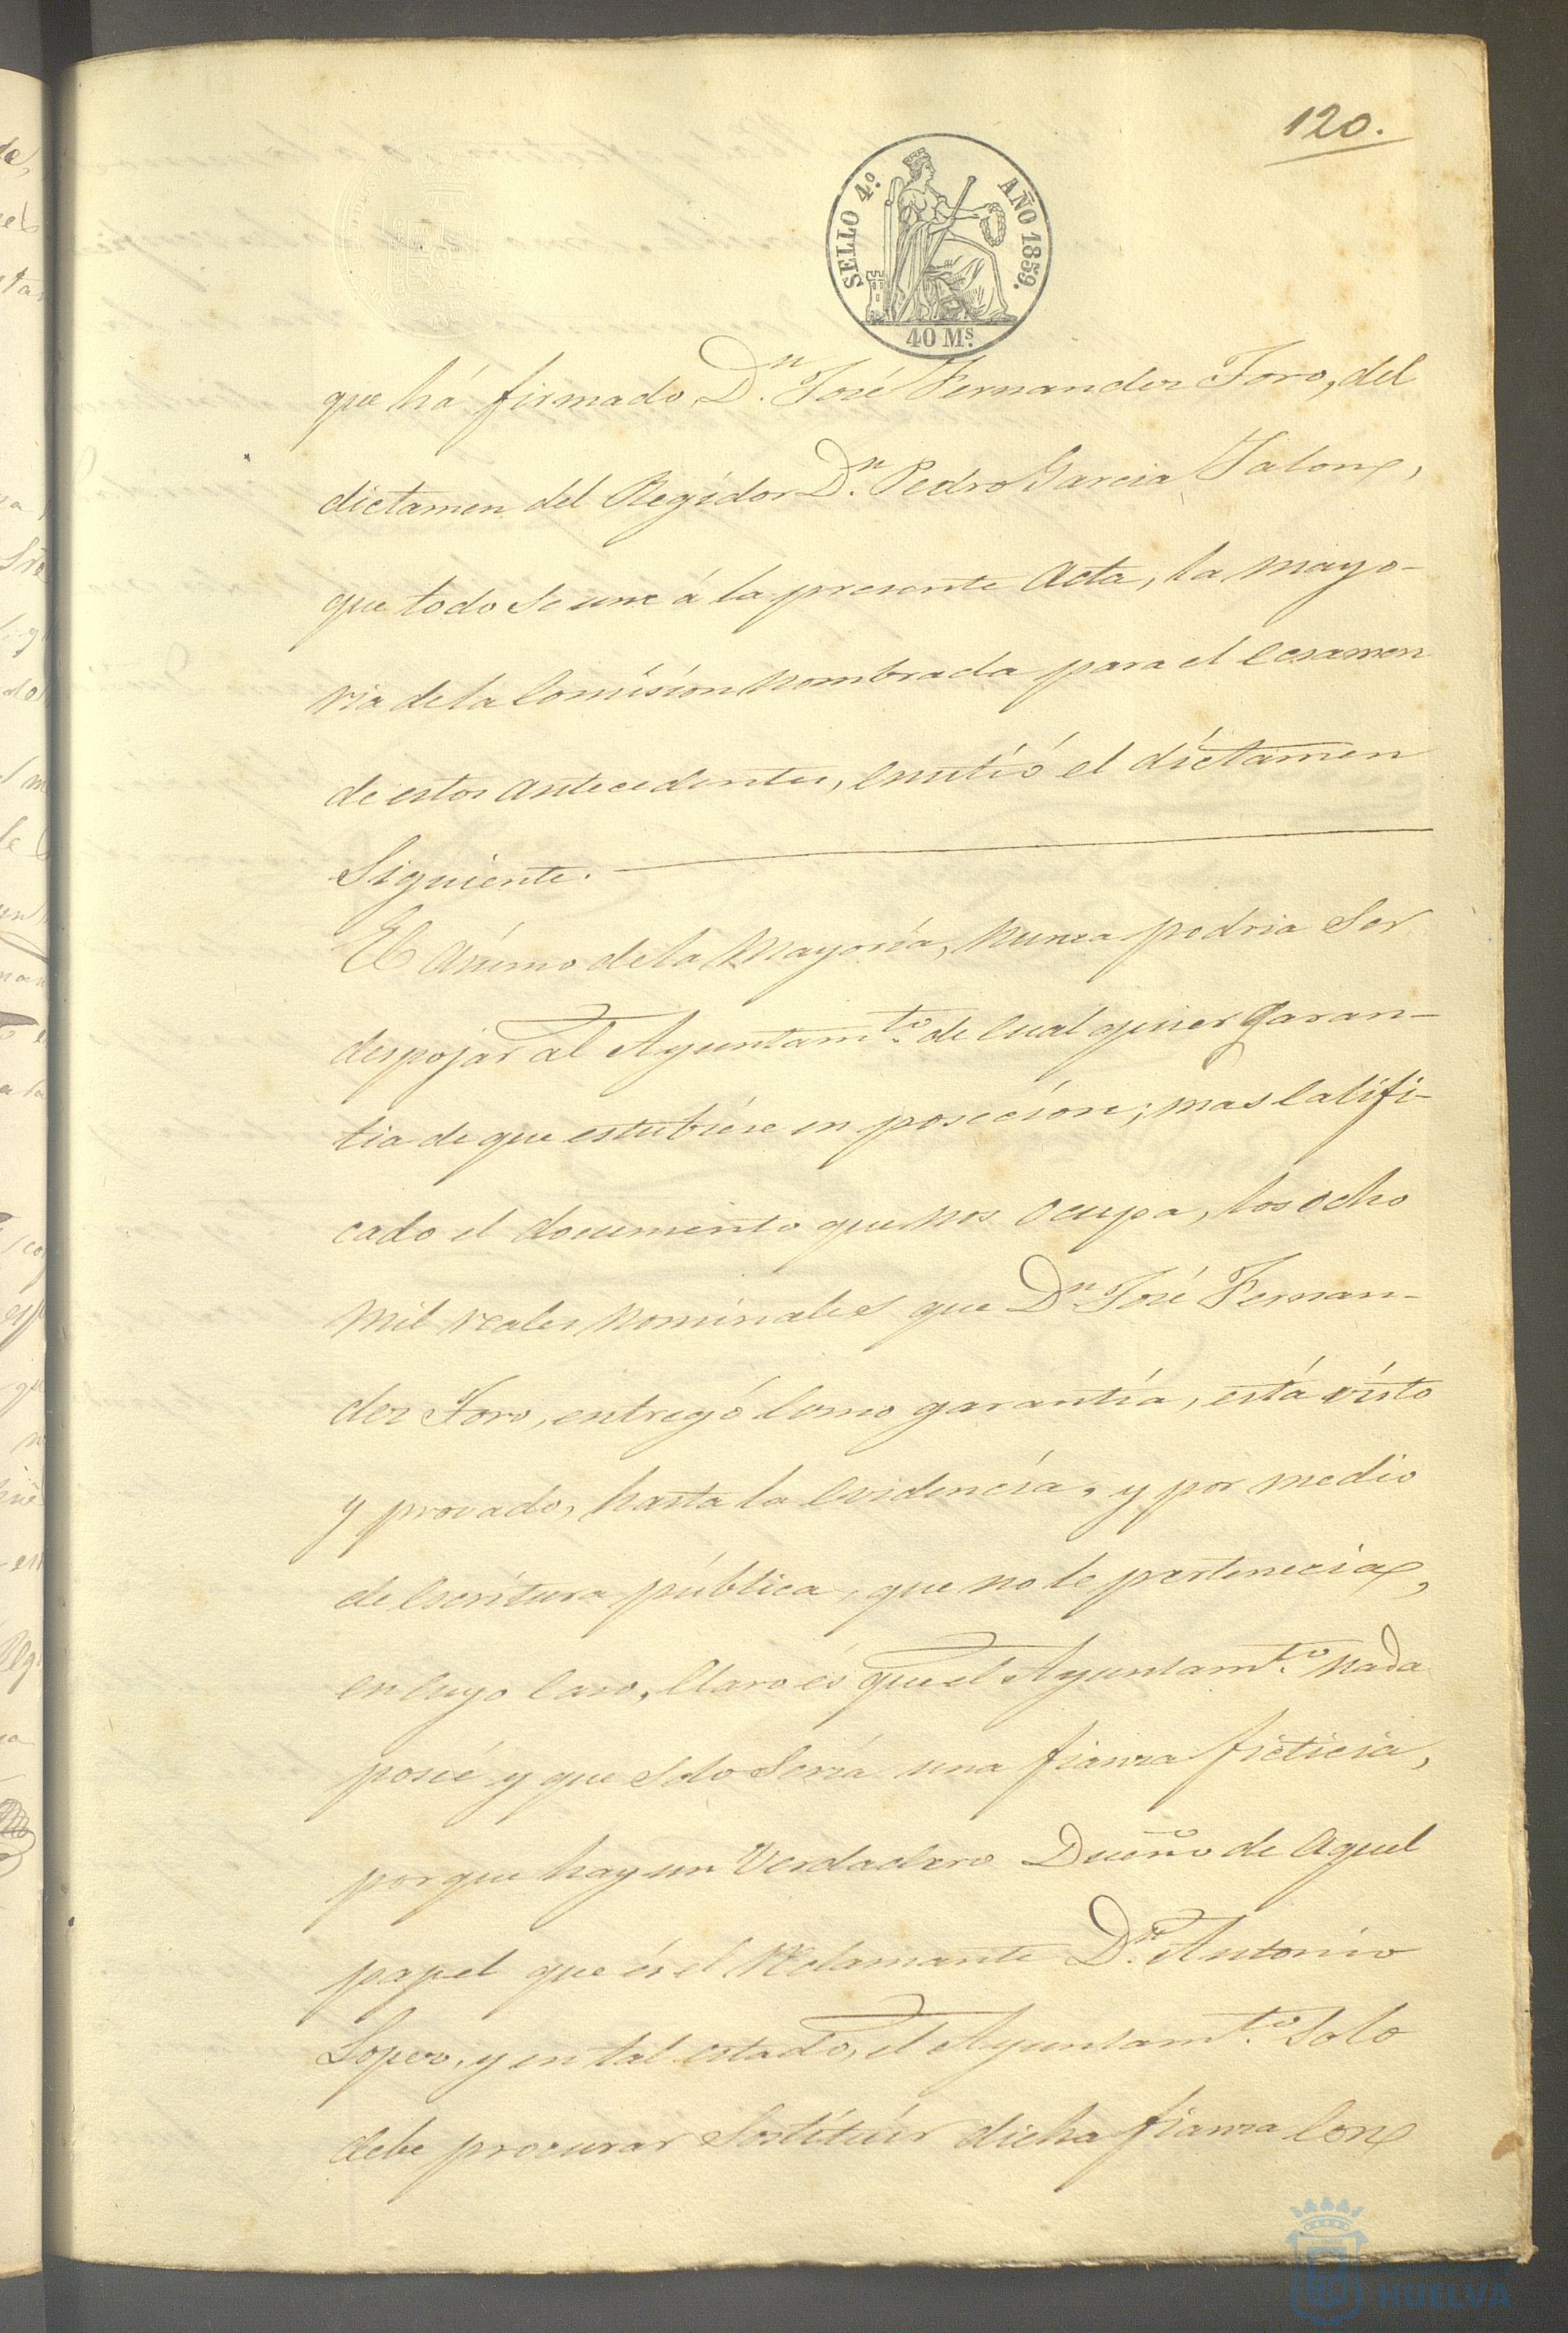 120.
SELLO 4.º AÑO 1859.
40 Ms.
que há firmado, Dn. José Fernandez Toro, del
dictamen del Regidor Dn. Pedro Garcia Jalon,
que todo se une á la presente Acta, la mayo-
ria de la Comisíon nombrada para el Ecsamen
de estos antecedentes, Emitió el díctamen
Siguiente.
El Ánimo de la Mayoría, nunca podria Ser
despojar al Ayuntamto. de Cualquier garan-
tia de que estubiése en poseción; mas Calífi-
cado el documento que nos Ocupa, los ocho
Mil reales nominales que Dn. José Fernan-
dez Toro, entregó Como garantía, está vísto
y provado, hasta la Evidencía, y por medio
de Escritura pública, que no le pertenecia,
en Cuyo Caso, Claro és que el Ayuntamto. nada
poseé y que solo Sería una fianza ficticia,
porque hay un Verdadero Dueño de Aquel
papel que és el Reclamante Dn. Antonio
Lopez, y en tal estado, el Ayuntamto. Solo
debe procurar Sostítuír dicha fianza Con
HUELVA